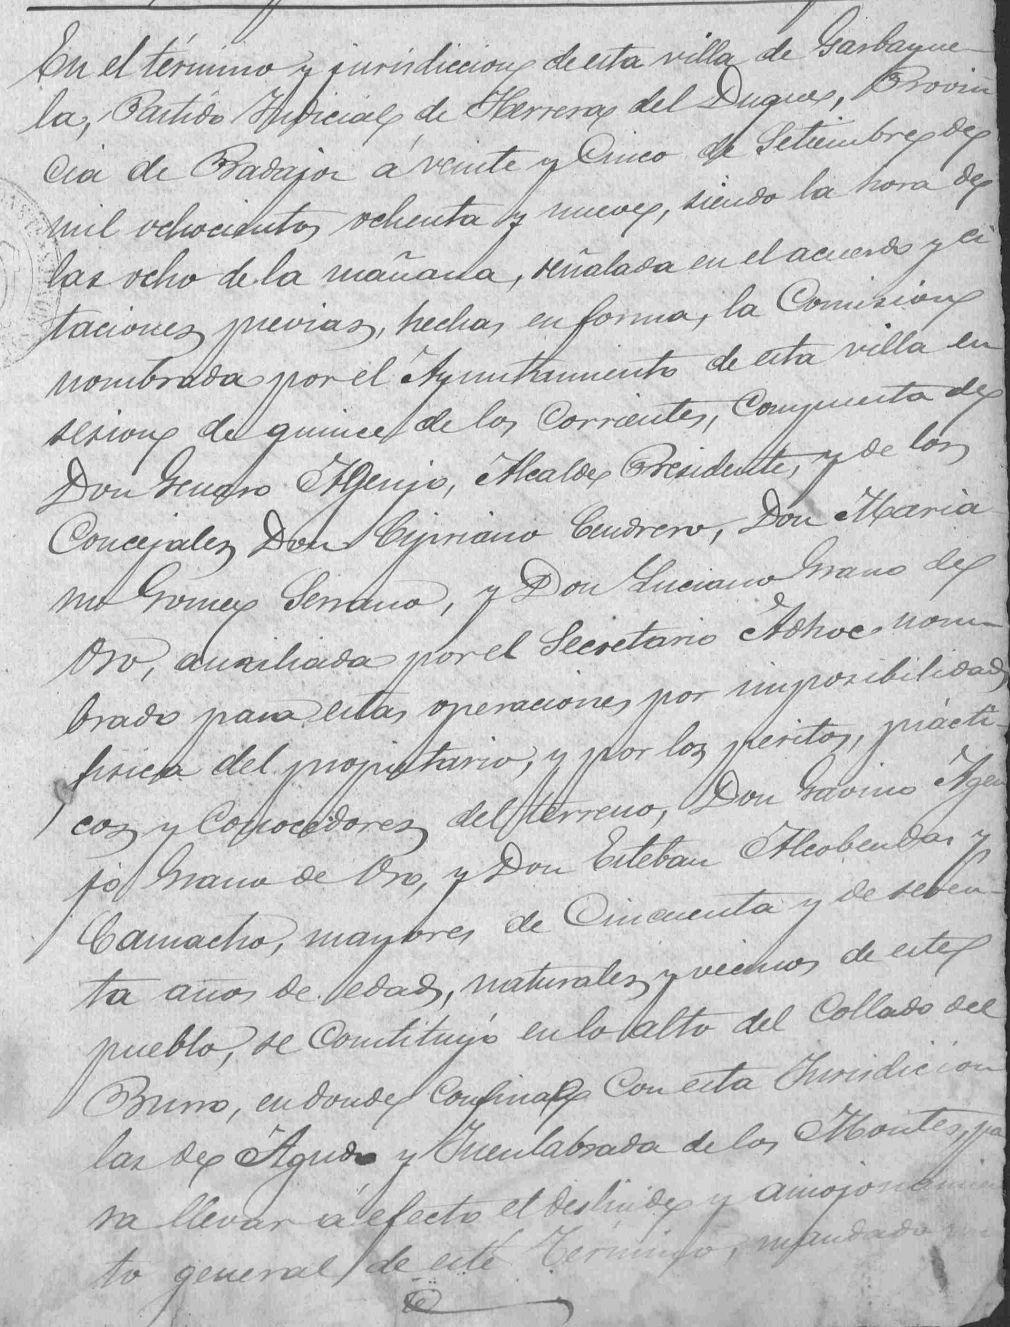 En el término y jurisdiccion de esta villa de Garbayue-
la, Partido Judicial de Herrera del Duque, Provin
cia de Badajoz á veinte y Cinco de Setiembre de
mil ochocientos ochenta y nueve, siendo la hora de
las ocho de la mañana, señalada en el acuerdo y ci
taciones previas, hechas en forma, la Comision
nombrada por el Ayuntamiento de esta villa en
sesion de quince de los corrientes, compuesta de
Don Genaro Agenjo, Alcalde Presidente, y de los
Concejales Don Cipriano Cendrero, Don Maria-
no Gomez Serrano, y Don Luciano Grano de
Oro, auxiliada por el Secretario Adhoc nom-
brado para estas operaciones por imposibilidad
fisica del propietario, y por los peritos, prácti-
cos y Conocedores del terreno, Don Gavino Agen
jo Grano de Oro, y Don Esteban Alcobendas y
Camacho, mayores de Cincuenta y de seten-
ta años de edad, naturales y vecinos de este
pueblo, se Constituyó en lo alto del Collado del
Burro, en donde Confina Con esta Jurisdicion
las de Agudo y Fuenlabrada de los Montes, pa
ra llevar á efecto el deslinde y amojonamien
to general de este Término, mandado